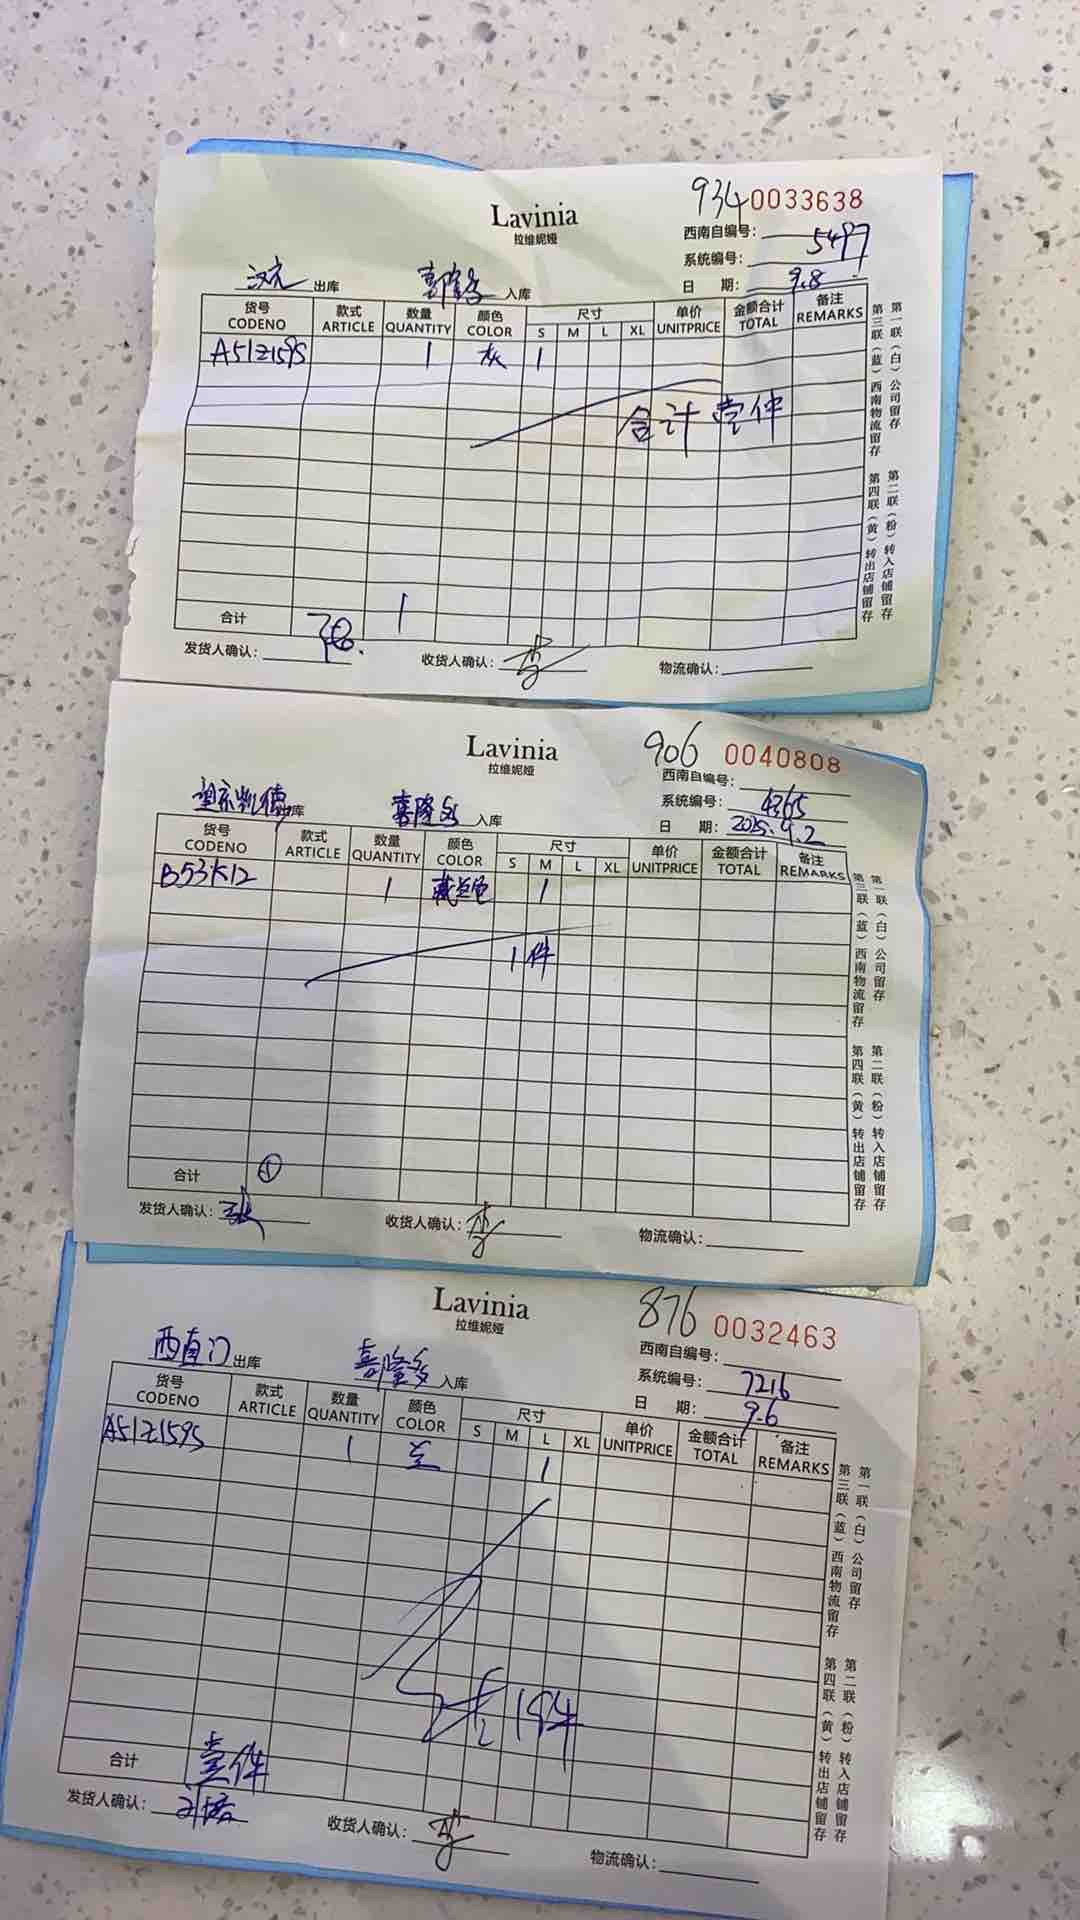 934 0033638
Lavinia
拉维妮娅
西南自编号：
系统编号： 5497
日 期： 9.8
汉光 出库 喜隆多 入库
货号 款式 数量 颜色 尺寸 单价 金额合计 备注
CODENO ARTICLE QUANTITY COLOR S M L XL UNITPRICE TOTAL REMARKS
A51Z1595 1 灰 1
合计 壹件
合计 1
发货人确认： 收货人确认： 李 物流确认：
第一联（白）公司留存 第二联（粉）转入店铺留存
第三联（蓝）西南物流留存 第四联（黄）转出店铺留存
906 0040808
Lavinia
拉维妮娅
西南自编号：
系统编号： 4365
日 期： 2025.9.2
望京凯德 出库 喜隆多 入库
货号 款式 数量 颜色 尺寸 单价 金额合计 备注
CODENO ARTICLE QUANTITY COLOR S M L XL UNITPRICE TOTAL REMARKS
B53K12 1 藏兰色 1
1件
合计 ①
发货人确认： 张 收货人确认： 李 物流确认：
第一联（白）公司留存 第二联（粉）转入店铺留存
第三联（蓝）西南物流留存 第四联（黄）转出店铺留存
876 0032463
Lavinia
拉维妮娅
西南自编号：
系统编号： 7216
日 期： 9.6
西直门 出库 喜隆多 入库
货号 款式 数量 颜色 尺寸 单价 金额合计 备注
CODENO ARTICLE QUANTITY COLOR S M L XL UNITPRICE TOTAL REMARKS
A51Z1595 1 兰 1
共1件
合计 壹件
发货人确认： 收货人确认： 李 物流确认：
第一联（白）公司留存 第二联（粉）转入店铺留存
第三联（蓝）西南物流留存 第四联（黄）转出店铺留存